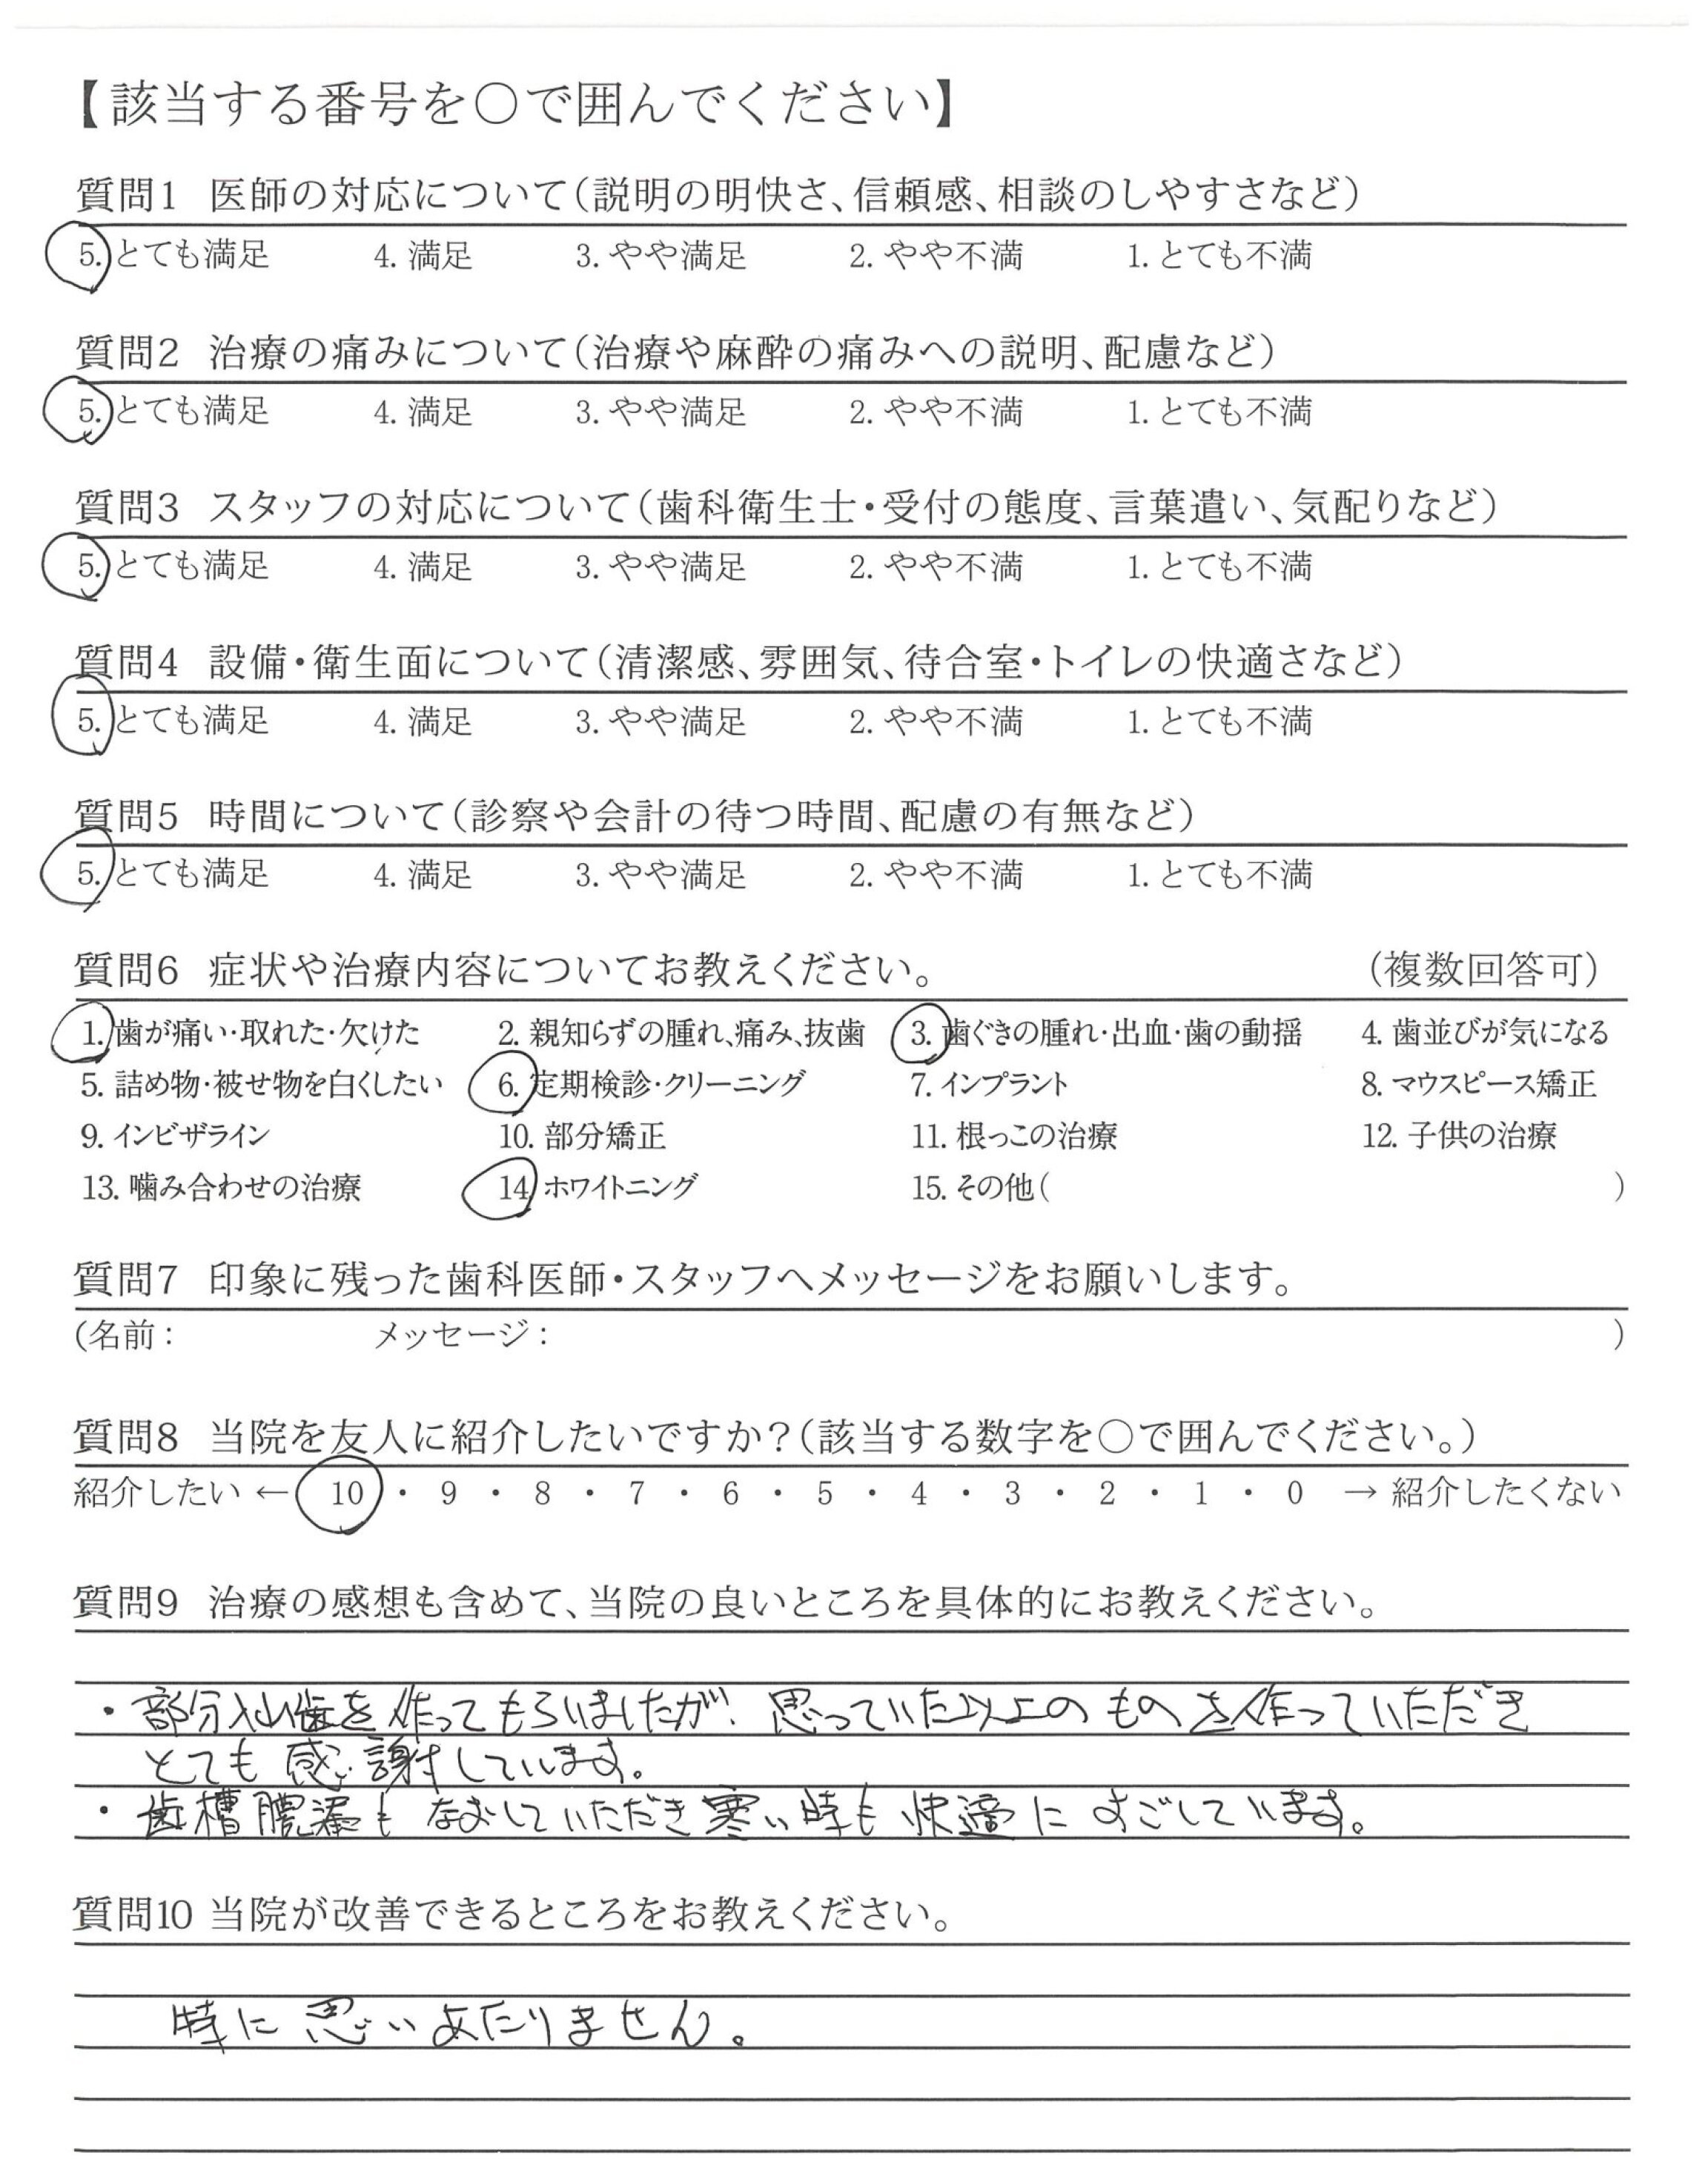 【該当する番号を○で囲んでください】
質問1 医師の対応について(説明の明快さ、信頼感、相談のしやすさなど)
5. とても満足 4. 満足 3. やや満足 2. やや不満 1. とても不満
質問2 治療の痛みについて(治療や麻酔の痛みへの説明、配慮など)
5. とても満足 4. 満足 3. やや満足 2. やや不満 1. とても不満
質問3 スタッフの対応について(歯科衛生士・受付の態度、言葉遣い、気配りなど)
5. とても満足 4. 満足 3. やや満足 2. やや不満 1. とても不満
質問4 設備・衛生面について(清潔感、雰囲気、待合室・トイレの快適さなど)
5. とても満足 4. 満足 3. やや満足 2. やや不満 1. とても不満
質問5 時間について(診察や会計の待つ時間、配慮の有無など)
5. とても満足 4. 満足 3. やや満足 2. やや不満 1. とても不満
質問6 症状や治療内容についてお教えください。 (複数回答可)
1. 歯が痛い・取れた・欠けた 2. 親知らずの腫れ、痛み、抜歯 3. 歯ぐきの腫れ・出血・歯の動揺 4. 歯並びが気になる
5. 詰め物・被せ物を白くしたい 6. 定期検診・クリーニング 7. インプラント 8. マウスピース矯正
9. インビザライン 10. 部分矯正 11. 根っこの治療 12. 子供の治療
13. 噛み合わせの治療 14. ホワイトニング 15. その他( )
質問7 印象に残った歯科医師・スタッフへメッセージをお願いします。
(名前: メッセージ: )
質問8 当院を友人に紹介したいですか?(該当する数字を○で囲んでください。)
紹介したい ← 10 ・ 9 ・ 8 ・ 7 ・ 6 ・ 5 ・ 4 ・ 3 ・ 2 ・ 1 ・ 0 → 紹介したくない
質問9 治療の感想も含めて、当院の良いところを具体的にお教えください。
・部分入歯を作ってもらいましたが、思っていた以上のものを作っていただき
とても感謝しています。
・歯槽膿漏もなおしていただき寒い時も快適にすごしています。
質問10 当院が改善できるところをお教えください。
特に思いあたりません。